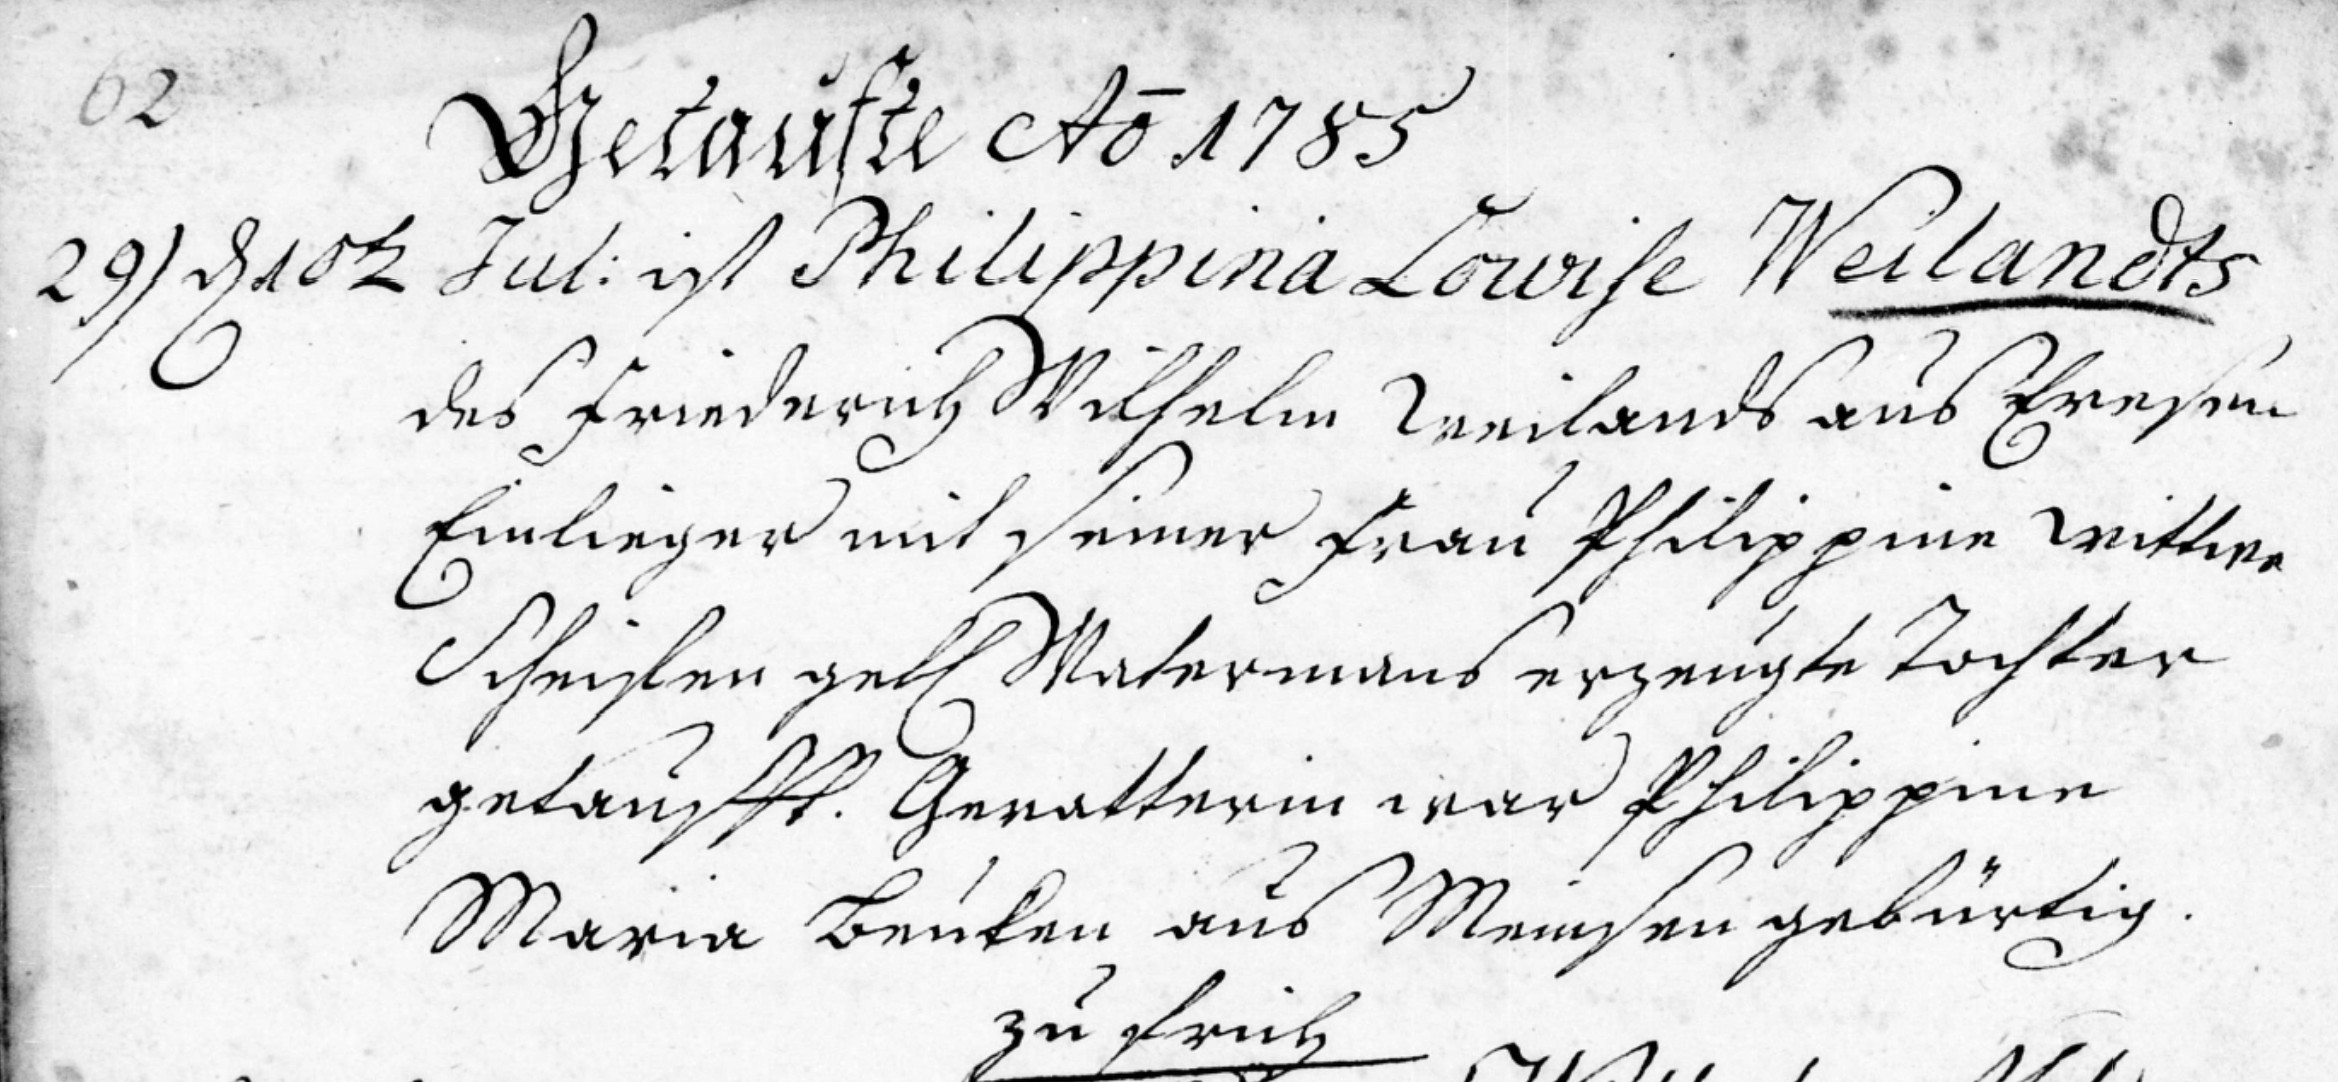 62
Getaufte Aō 1785
29) d 10t Jul: ist Philippina Lowise Weilandts
des Friederich Wilhelm Weilands aus Evesen
Einlieger mit seiner Frau Philippine Wittwe
Scheislen geb Watermans erzeugte Tochter
getaufft. Gevatterin war Philippine
Maria Beuken aus Meinsen gebürtig.
zu früh